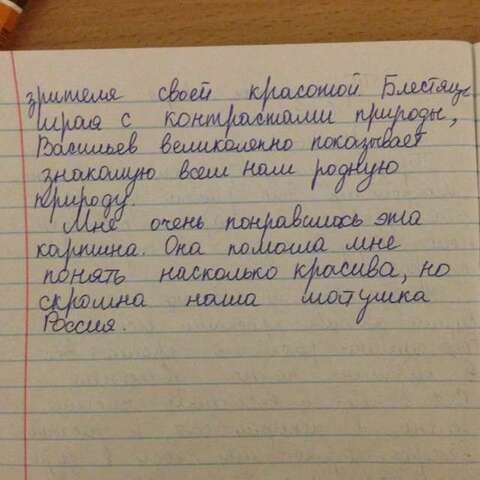 зрителя своей красотой Блестяще
играя с контрастами природы,
Васильев великолепно показывает
знакомую всем нам родную
природу.
Мне очень понравилось эта
картина. Она помогла мне
понять насколько красива, но
скромна наша матушка
Россия.